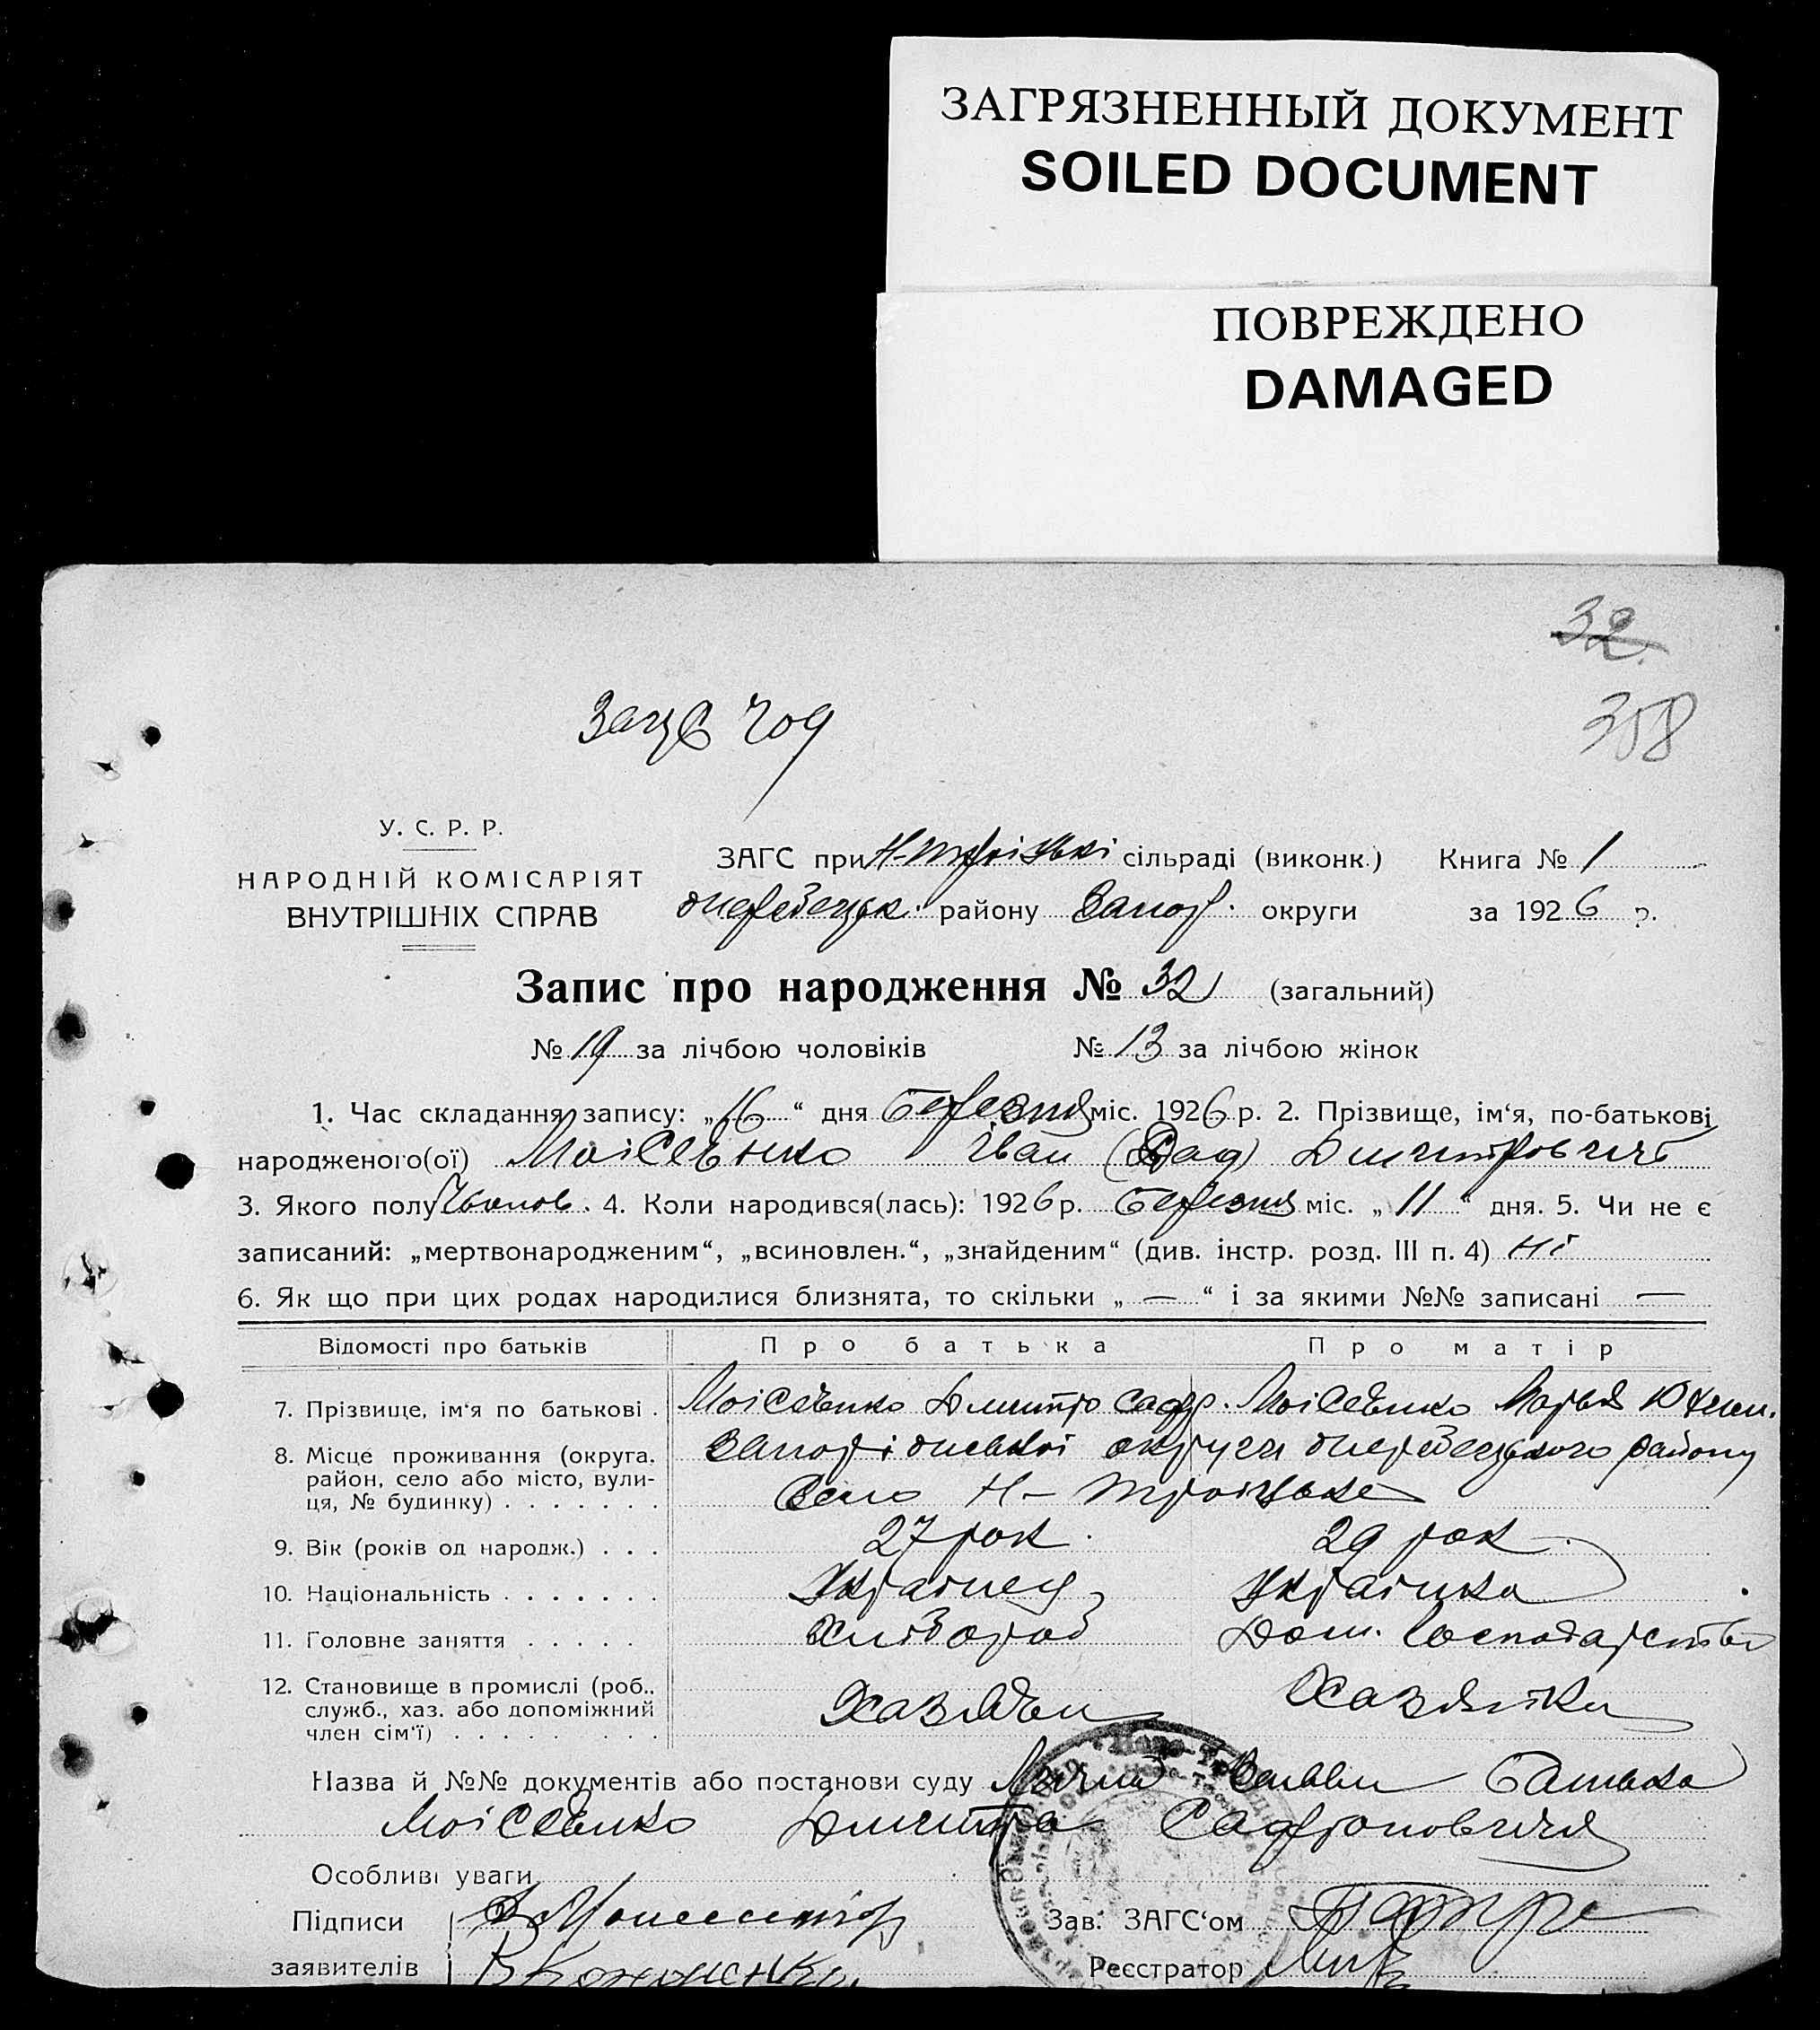 ЗАГРЯЗНЕННЫЙ ДОКУМЕНТ
SOILED DOCUMENT
ПОВРЕЖДЕНО
DAMAGED
32
358
У. С. Р. Р.
НАРОДНІЙ КОМІСАРІЯТ
ВНУТРІШНІХ СПРАВ
ЗАГС при Н-Троїцькі сільраді (виконк.) Книга № 1
району Запор. округи за 1926 р.
Запис про народження № 32 (загальний)
№ 19 за лічбою чоловіків № 13 за лічбою жінок
1. Час складання запису: „16“ дня березня міс. 1926 р. 2. Прізвище, ім‘я, по-батькові
народженого(ої) Моісеєнко Іван Дмитрович
3. Якого полу чолов. 4. Коли народився(лась): 1926 р. березня міс. „11“ дня. 5. Чи не є
записаний: „мертвонародженим“, „всиновлен.“, „знайденим“ (див. інстр. розд. III п. 4) ні
6. Як що при цих родах народилися близнята, то скільки „—“ і за якими №№ записані —
Відомості про батьків Про батька Про матір
7. Прізвище, ім‘я по батькові . Моісеєнко Дмитро Софр. Моісеєнко Марья Юхим.
8. Місце проживання (округа, район, село або місто, вули-ця, № будинку) . . . . . . . округи району
Село Н-Троіцьке
9. Вік (років од народж.) . . . 27 рок 29 рок
10. Національність . . . . . . . Украінец Украінка
11. Головне заняття . . . . . Хлібороб Дом. Господарство
12. Становище в промислі (роб., служб., хаз. або допоміжний член сім‘ї) . . . . . . . . . Хазяїн Хазяйка
Назва й №№ документів або постанови суду батька
Моісеєнко Дмитра Софроновича
Особливі уваги
Підписи Зав. ЗАГС‘ом
заявителів Реєстратор